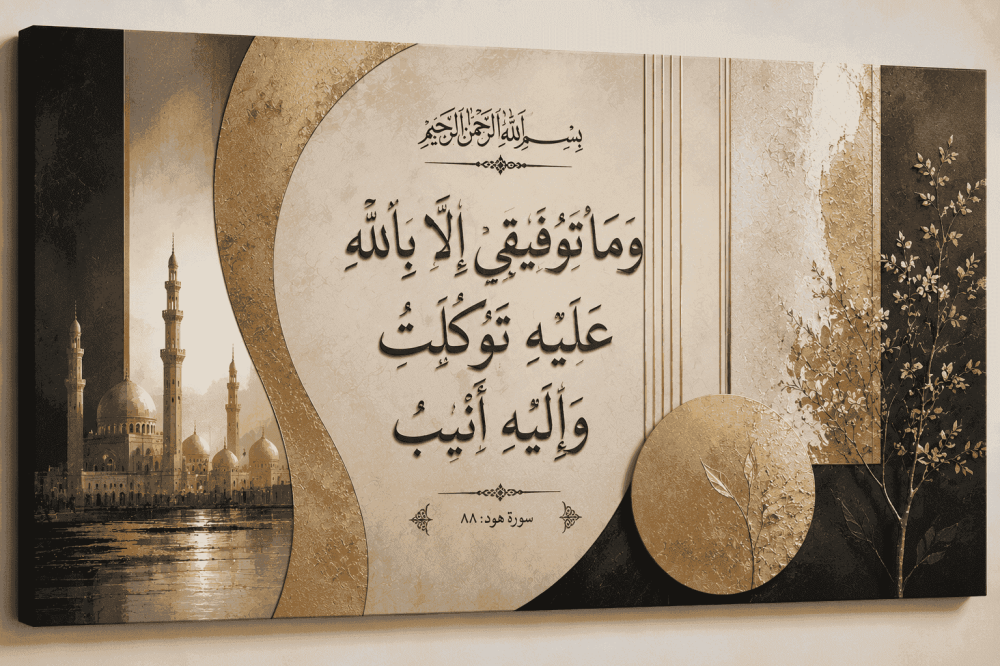 بِسْمِ اللَّهِ الرَّحْمَٰنِ الرَّحِيمِ
وَمَا تَوْفِيقِي إِلَّا بِاللَّهِ
عَلَيْهِ تَوَكَّلْتُ
وَإِلَيْهِ أُنِيبُ
سورة هود: ٨٨